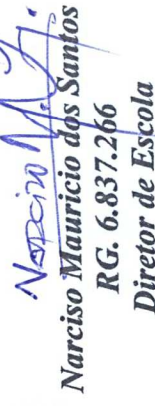 Narciso M
Narciso Mauricio dos Santos
RG. 6.837.266
Diretor de Escola